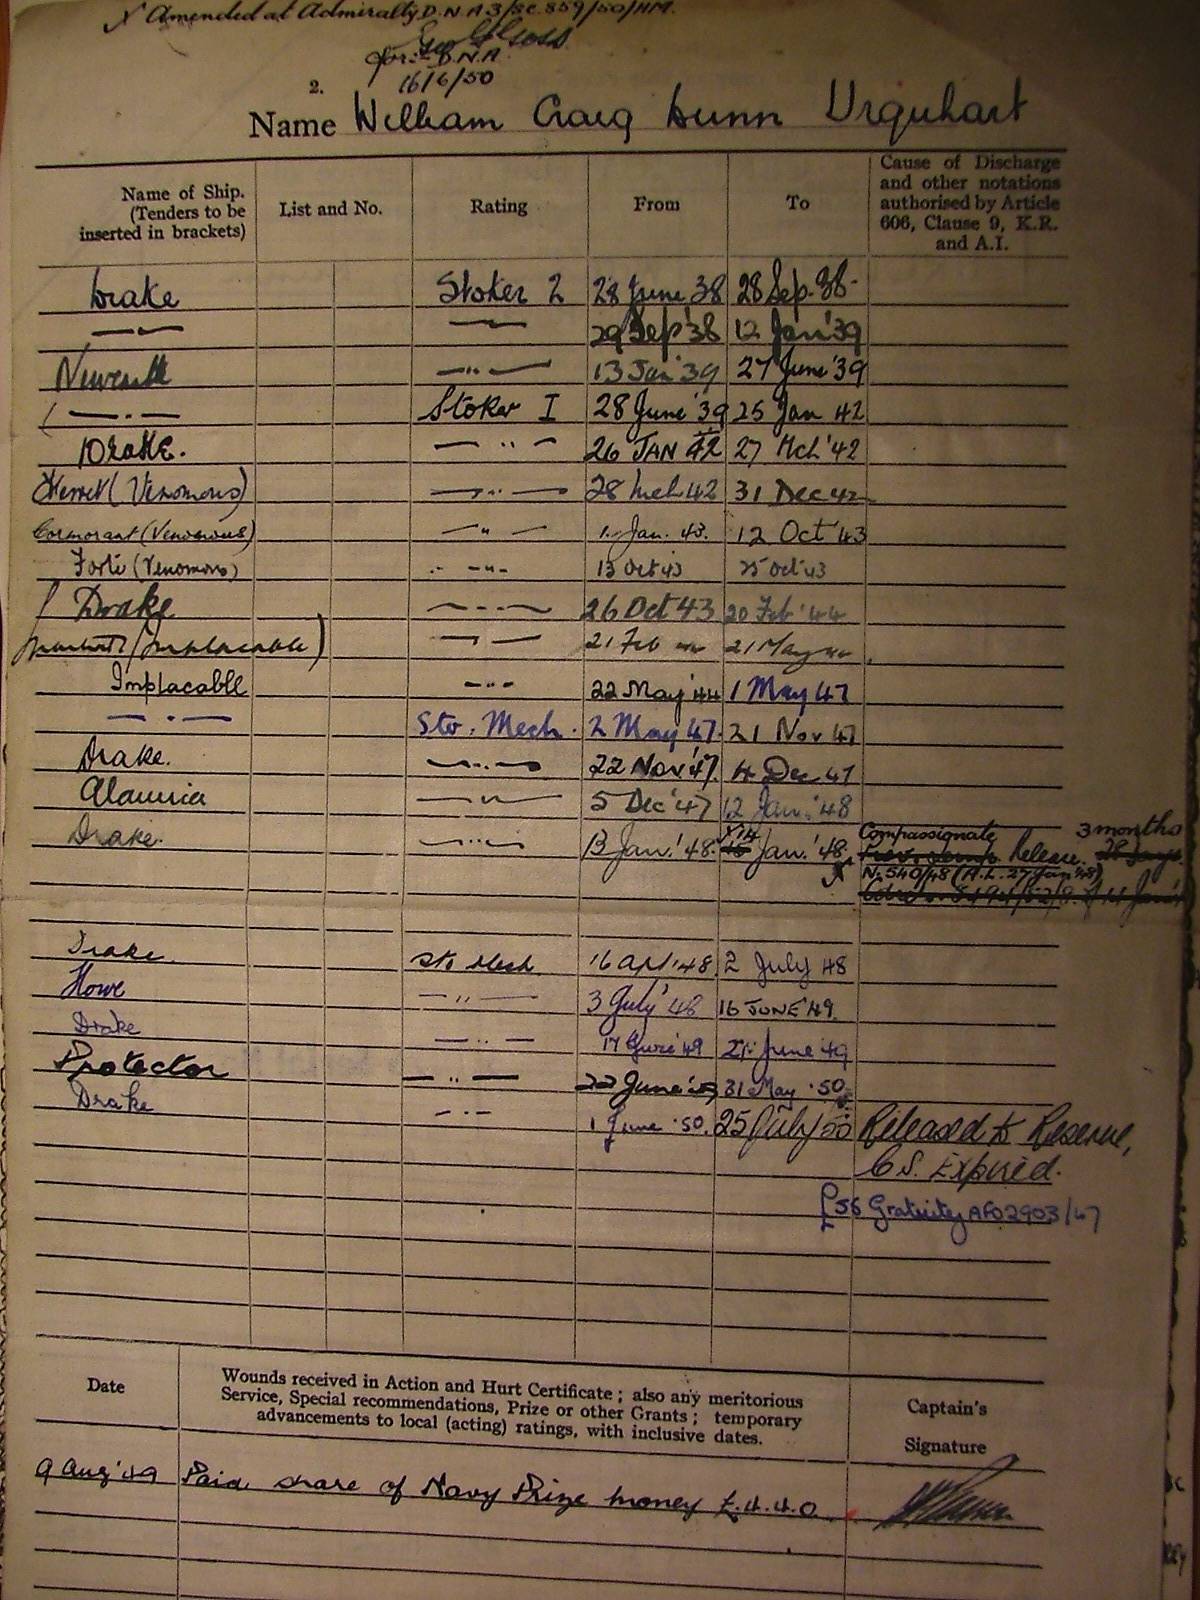 X Amended at Admiralty D.N.A.3/SC.859/50/HM.
for:- D.N.A.
16/6/50
2.
Name William Craig Gunn Urquhart
Name of Ship. (Tenders to be inserted in brackets) List and No. Rating From To Cause of Discharge and other notations authorised by Article 606, Clause 9, K.R. and A.I.
Drake Stoker 2 28 June 38 28 Sep. 38.
— " — — " — 29 Sep '38 12 Jan '39
Newcastle — " — 13 Jan '39 27 June '39
( — " — Stoker I 28 June '39 25 Jan 42
Drake. — " — 26 JAN 42 27 Mch '42
(Venomous) — " — 28 Mch 42 31 Dec 42
Cormorant (Venomous) — " — 1. Jan. 43. 12 Oct '43
Forte (Venomous) — " — 13 Oct 43 25 Oct 43
Drake — " — 26 Oct 43 20 Feb '44
(Implacable) — " — 21 Feb 44 21 May 44
Implacable — " — 22 May '44 1 May 47
— " — Sto. Mech. 2 May 47. 21 Nov 47
Drake. — " — 22 Nov '47. 4 Dec 47
Alaunia — " — 5 Dec '47 12 Jan. '48
Drake. — " — 13 Jan. '48. X14 Jan. '48 Compassionate Release. 3 months
X N. 540/48 (A.L. 27 Jan '48)
Drake. Sto Mech 16 Apl '48 2 July 48
Howe — " — 3 July '48 16 JUNE '49.
Drake — " — 17 June '49 21 June 49
Protector — " — 22 June '49 31 May '50.
Drake — " — 1 June '50. 25 July 50 Released to Reserve,
C.S. Expired.
£56 Gratuity AFO 2903/47
Date Wounds received in Action and Hurt Certificate; also any meritorious Service, Special recommendations, Prize or other Grants; temporary advancements to local (acting) ratings, with inclusive dates. Captain's Signature
9 Aug '49 Paid share of Navy Prize money £.4.4.0.